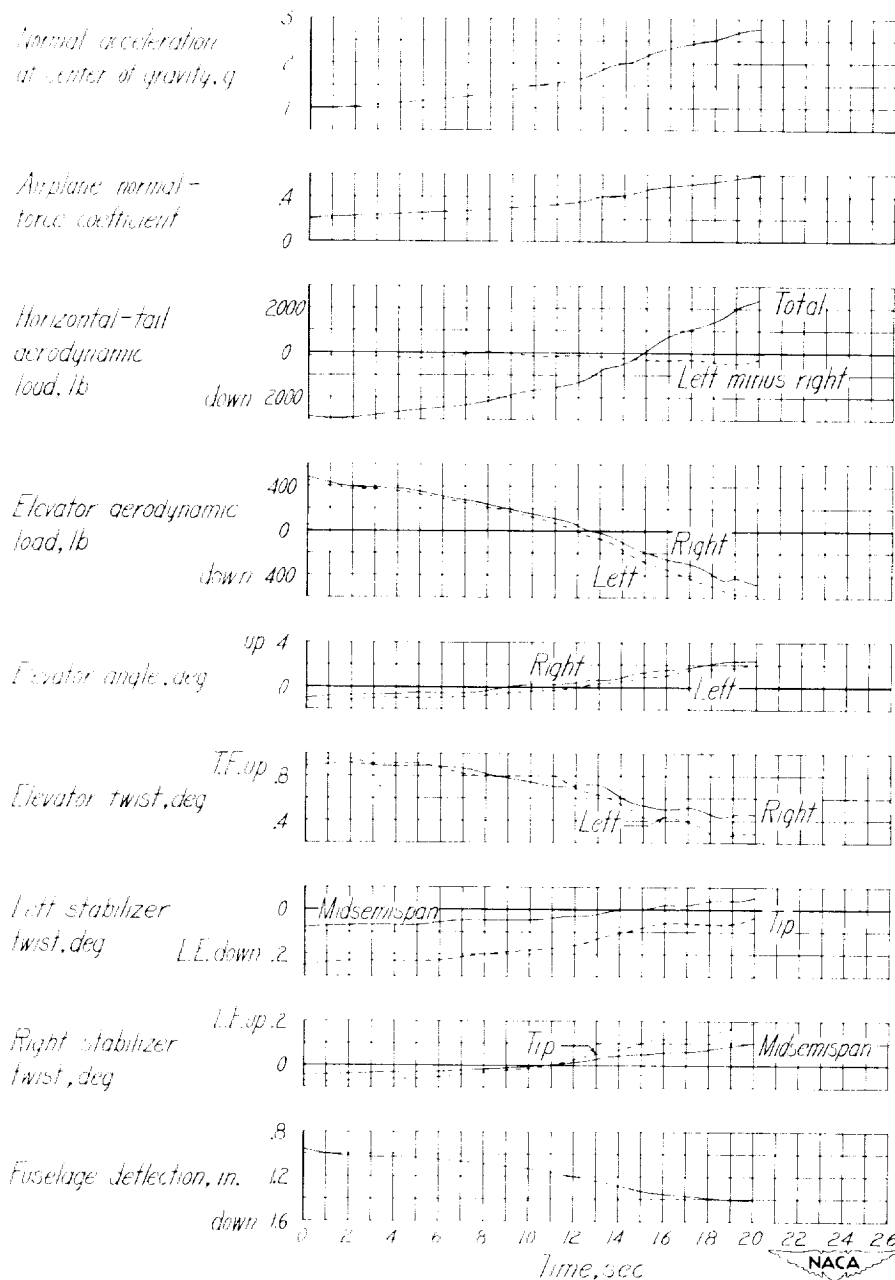 3
Normal acceleration
at center of gravity, g
2
1
Airplane normal-
force coefficient
.4
0
Horizontal-tail
aerodynamic
load, lb
2000
0
down 2000
Total
Left minus right
Elevator aerodynamic
load, lb
400
0
down 400
Right
Left
Elevator angle, deg
up 4
0
Right
Left
Elevator twist, deg
T.E. up .8
.4
Left
Right
Left stabilizer
twist, deg
0
L.E. down .2
Midsemispan
Tip
Right stabilizer
twist, deg
L.E. up .2
0
Tip
Midsemispan
Fuselage deflection, in.
.8
1.2
down 1.6
0 2 4 6 8 10 12 14 16 18 20 22 24 26
Time, sec
NACA